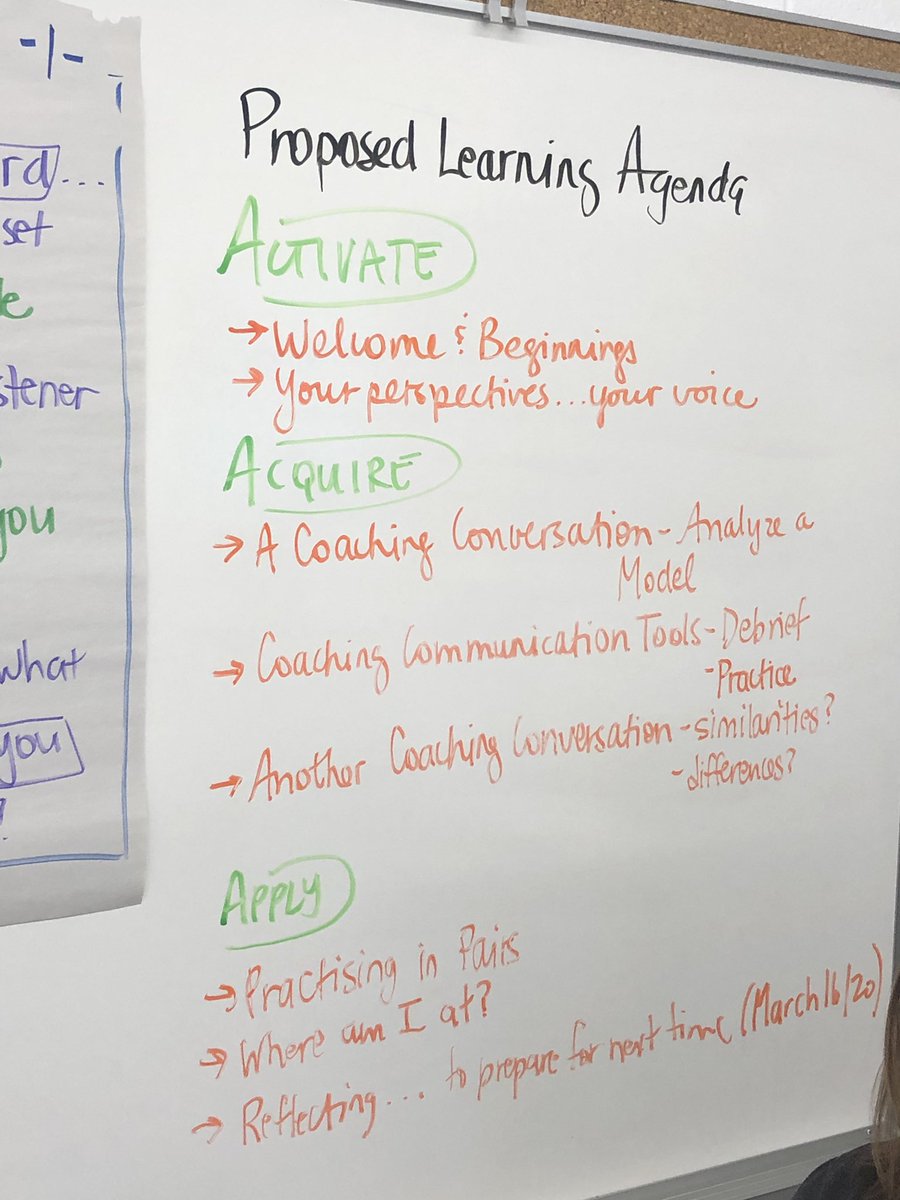 -1-
rd...
set
stener
you
what
you
Proposed Learning Agenda
ACTIVATE
→ Welcome & Beginnings
→ Your perspectives...your voice
ACQUIRE
→ A Coaching Conversation - Analyze a
Model
→ Coaching Communication Tools - Debrief
- Practice
→ Another Coaching Conversation - similarities?
- differences?
APPLY
→ Practising in Pairs
→ Where am I at?
→ Reflecting... to prepare for next time (March 16/20)